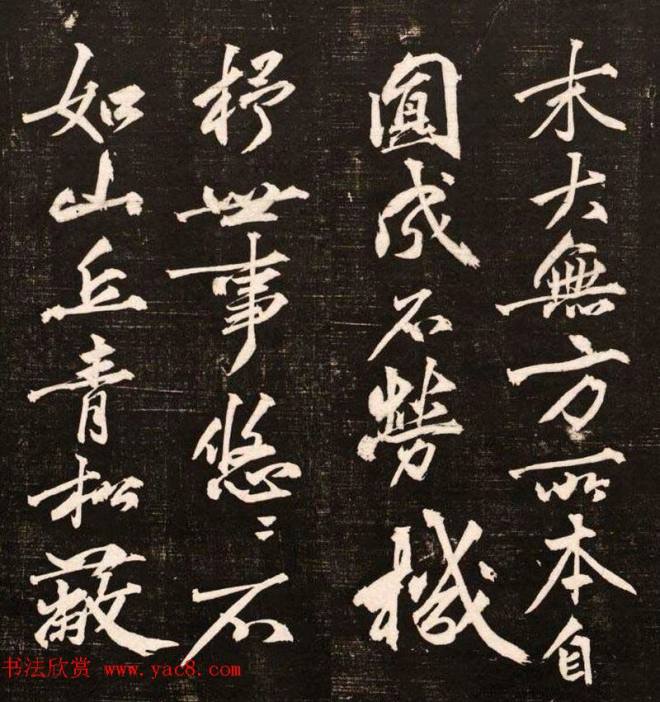 末大無方所本自
圓成不勞機
杼世事悠〻不
如山丘青松蔽
书法欣赏 www.yac8.com